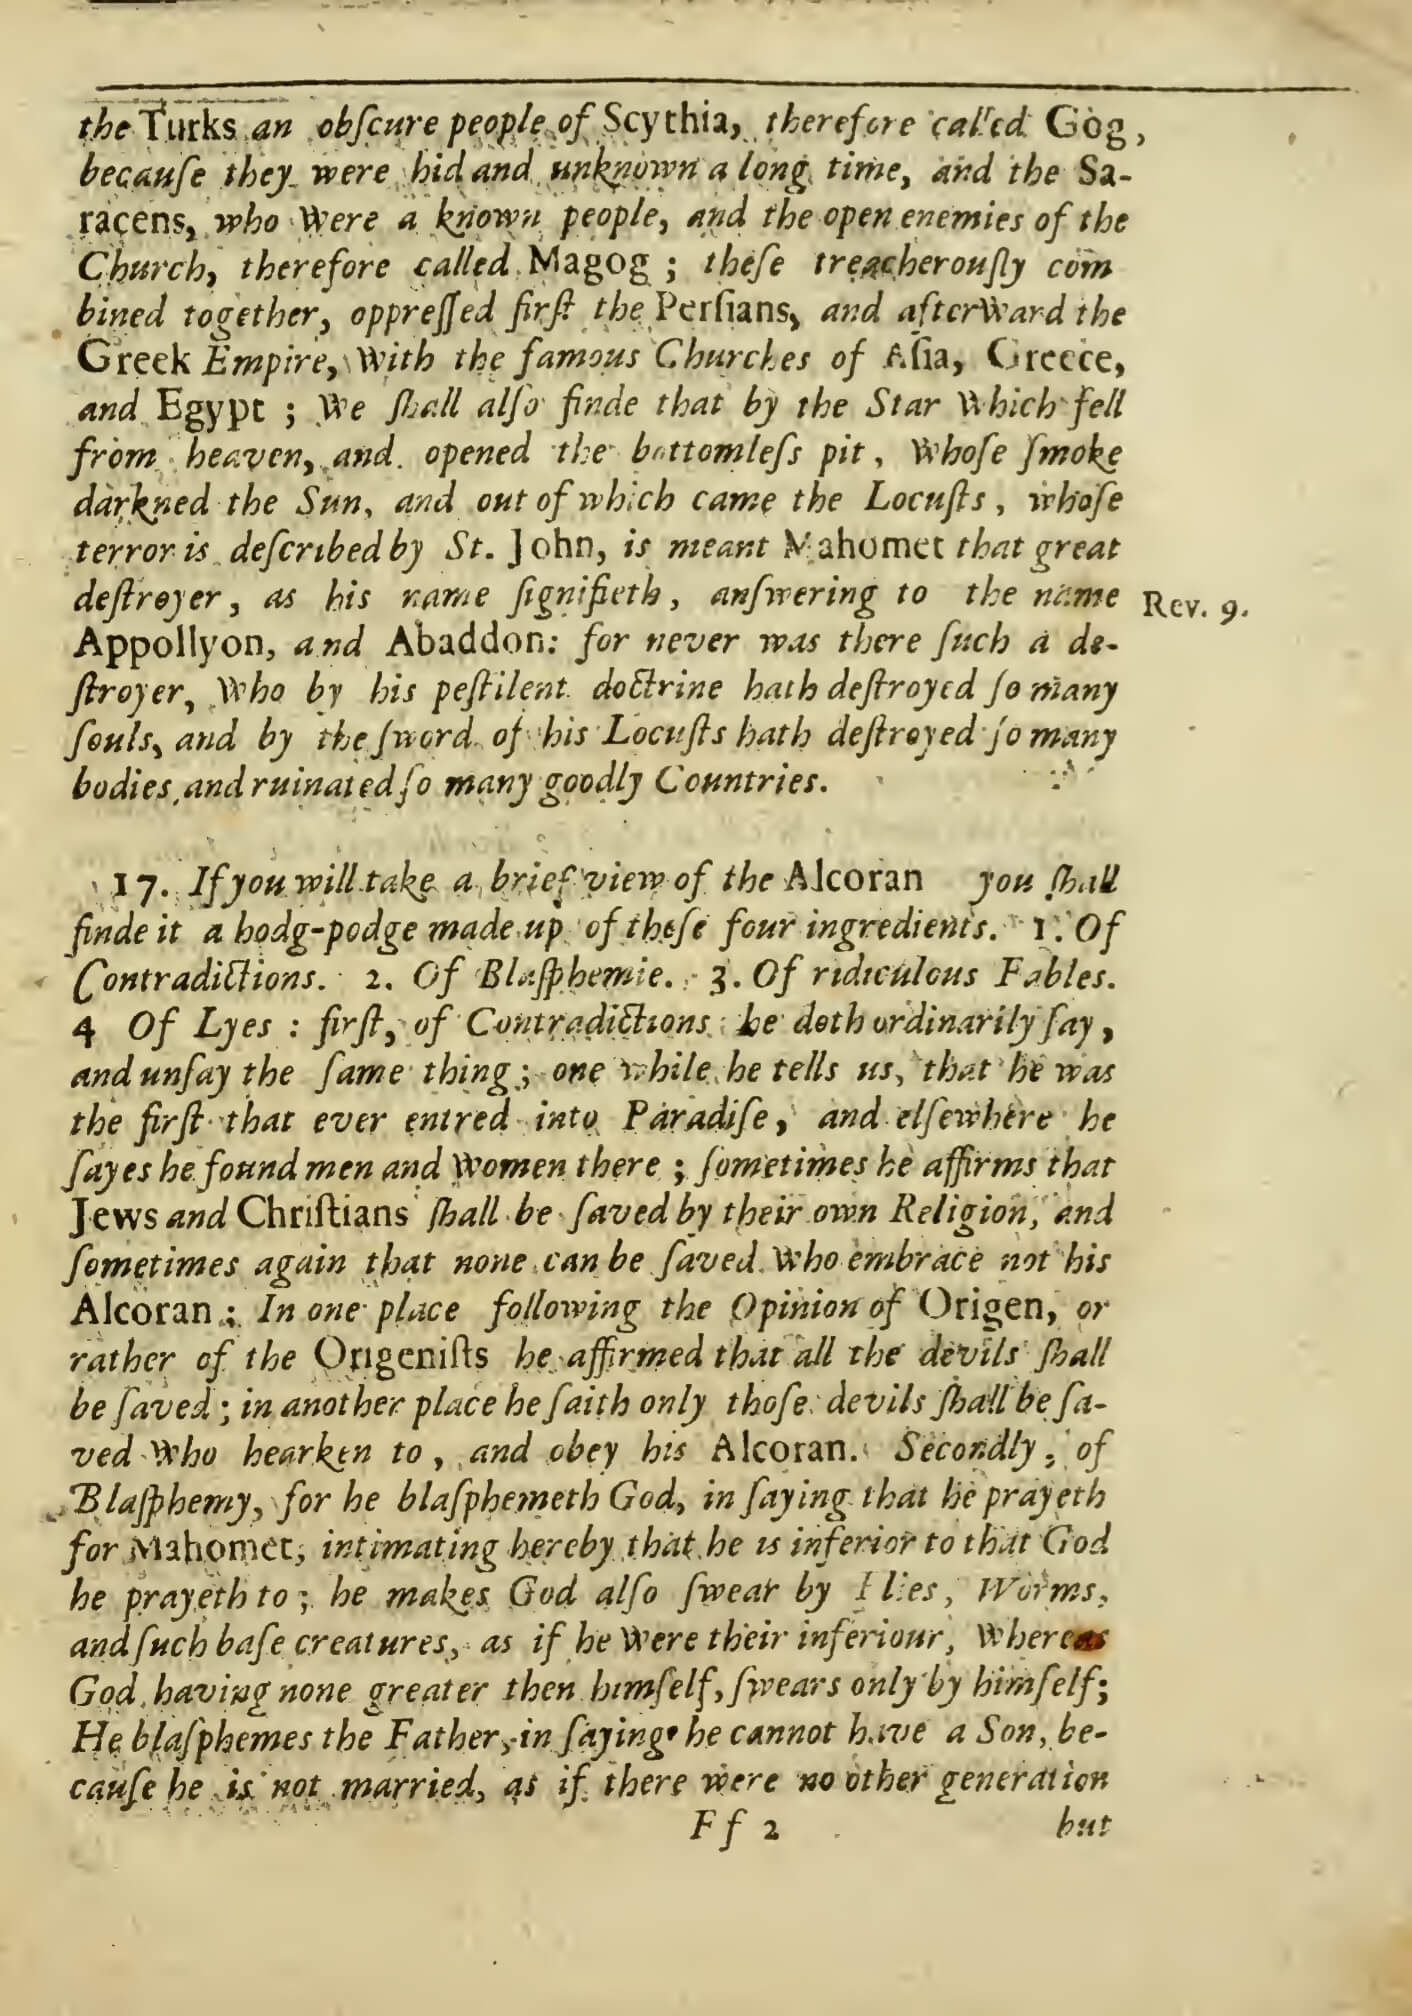 the Turks an obſcure people of Scythia, therefore called Gog,
becauſe they were hid and unknown a long time, and the Sa-
racens, who were a known people, and the open enemies of the
Church, therefore called Magog ; theſe treacherouſly com
bined together, oppreſſed firſt the Perſians, and afterward the
Greek Empire, with the famous Churches of Aſia, Greece,
and Egypt ; we ſhall alſo finde that by the Star which fell
from heaven, and opened the bottomleſs pit, whoſe ſmoke
darkned the Sun, and out of which came the Locuſts, whoſe
terror is deſcribed by St. John, is meant Mahomet that great
deſtroyer, as his name ſignifieth, anſwering to the name
Rev. 9.
Appollyon, and Abaddon: for never was there ſuch a de-
ſtroyer, who by his peſtilent doctrine hath deſtroyed ſo many
ſouls, and by the ſword of his Locuſts hath deſtroyed ſo many
bodies, and ruinated ſo many goodly Countries.
17. If you will take a brief view of the Alcoran you ſhall
finde it a hodg-podge made up of theſe four ingredients. 1. Of
Contradictions. 2. Of Blaſphemie. 3. Of ridiculous Fables.
4 Of Lyes : firſt, of Contradictions he doth ordinarily ſay,
and unſay the ſame thing ; one while he tells us, that he was
the firſt that ever entred into Paradiſe, and elſewhere he
ſayes he found men and women there ; ſometimes he affirms that
Jews and Chriſtians ſhall be ſaved by their own Religion, and
ſometimes again that none can be ſaved who embrace not his
Alcoran ; In one place following the Opinion of Origen, or
rather of the Origeniſts he affirmed that all the devils ſhall
be ſaved ; in another place he ſaith only thoſe devils ſhall be ſa-
ved who hearken to, and obey his Alcoran. Secondly, of
Blaſphemy, for he blaſphemeth God, in ſaying that he prayeth
for Mahomet, intimating hereby that he is inferior to that God
he prayeth to ; he makes God alſo ſwear by Flies, Worms,
and ſuch baſe creatures, as if he were their inferiour, whereas
God having none greater then himſelf, ſwears only by himſelf;
He blaſphemes the Father, in ſaying he cannot have a Son, be-
cauſe he is not married, as if there were no other generation
F f 2 but